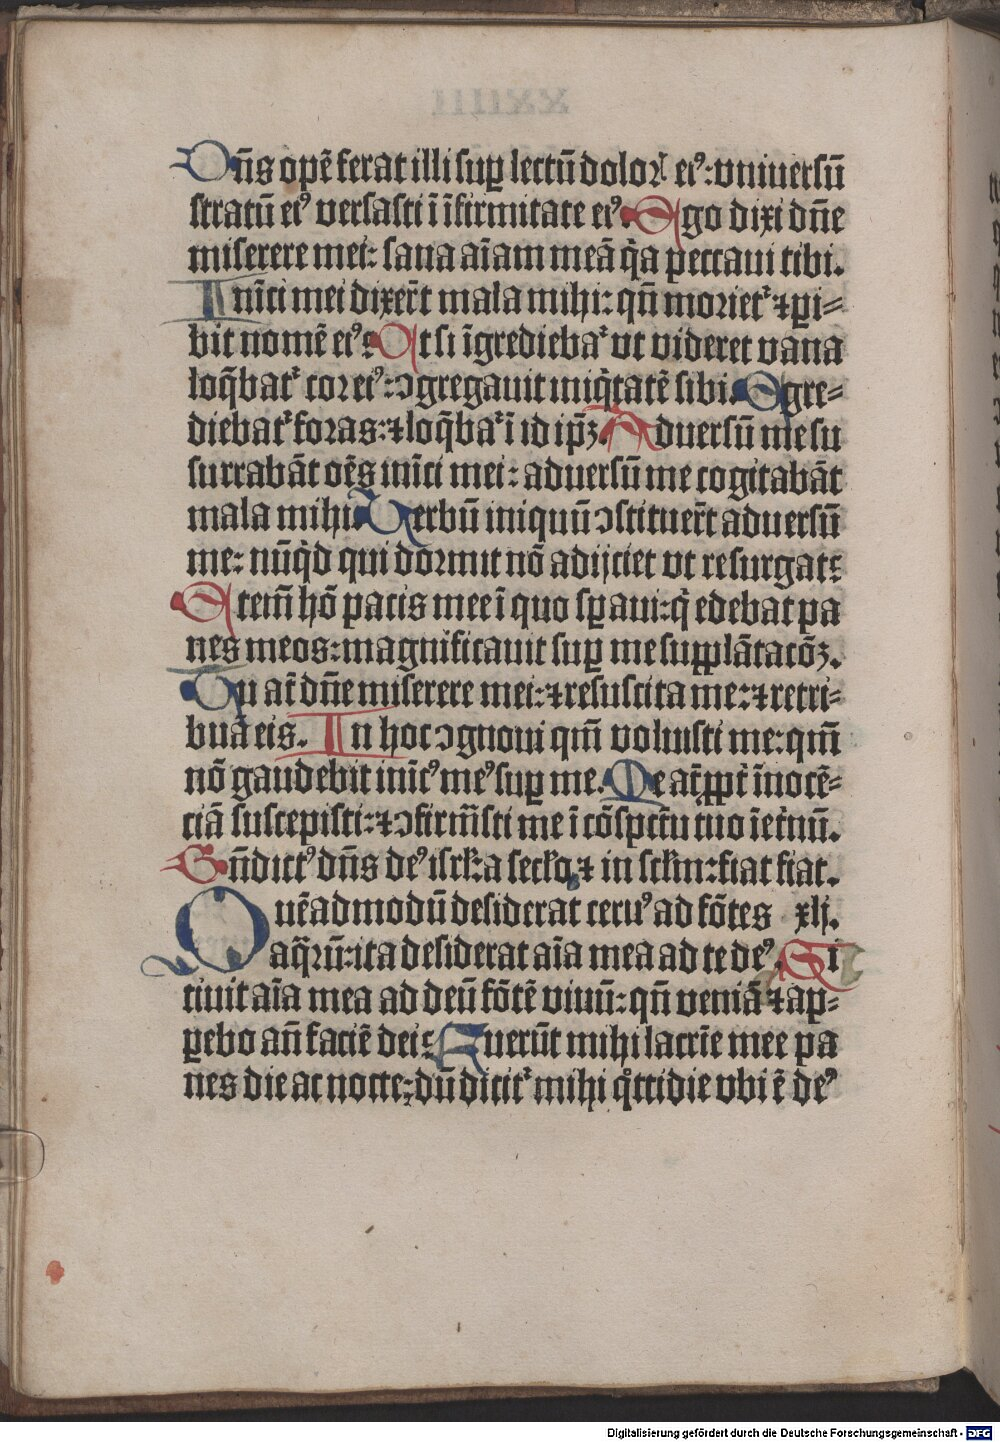 Dñs opẽ ferat illi suꝑ lectũ dolor̃ eiꝰ: vniuersũ
stratũ eiꝰ versasti ĩ ĩfirmitate eiꝰ. Ego dixi dñe
miserere mei: sana aĩam meã q̃a peccaui tibi.
Inĩci mei dixer̃t mala mihi: qñ morietᷣ ⁊ ꝑi⸗
bit nomẽ eiꝰ? Et si ĩgrediebaᷣ vt videret vana
loq̃batᷣ cor eiꝰ: ↄgregauit iniq̃tatẽ sibi. Egre⸗
diebatᷣ foras: ⁊ loq̃baᷣ ĩ id ip̃ꝫ. Aduersũ me su
surrabãt oẽs inĩci mei: aduersũ me cogitabãt
mala mihi. Verbũ iniquũ ↄstituer̃t aduersũ
me: nũq̇d qui dormit nõ adijciet vt resurgat?
Etem̃ hõ pacis mee ĩ quo sꝑaui: q̇ edebat pa
nes meos: magnificauit suꝑ me supplãtacõꝫ.
Tu at̃ dñe miserere mei: ⁊ resuscita me: ⁊ retri⸗
buã eis. In hoc ↄgnoui qm̃ voluisti me: qm̃
nõ gaudebit inĩcꝰ meꝰ suꝑ me. Me at̃ ꝓpt̃ ĩnocẽ⸗
ciã suscepisti: ⁊ ↄfirm̃sti me ĩ cõspctũ tuo ĩ et̃nũ.
Bñdictꝰ dñs deꝰ isrl̃: a seclo ⁊ in sclm: fiat fiat.
Quẽadmodũ desiderat ceruꝰ ad fõtes xlj.
aq̃rũ: ita desiderat aĩa mea ad te deꝰ. Si
tiuit aĩa mea ad deũ fõtẽ viuũ: qñ veniã ⁊ ap⸗
ꝑebo añ faciẽ dei? Fuerũt mihi lacrĩe mee pa
nes die ac nocte: dũ dicitᷣ mihi q̊tidie vbi ẽ deꝰ
Digitalisierung gefördert durch die Deutsche Forschungsgemeinschaft - DFG